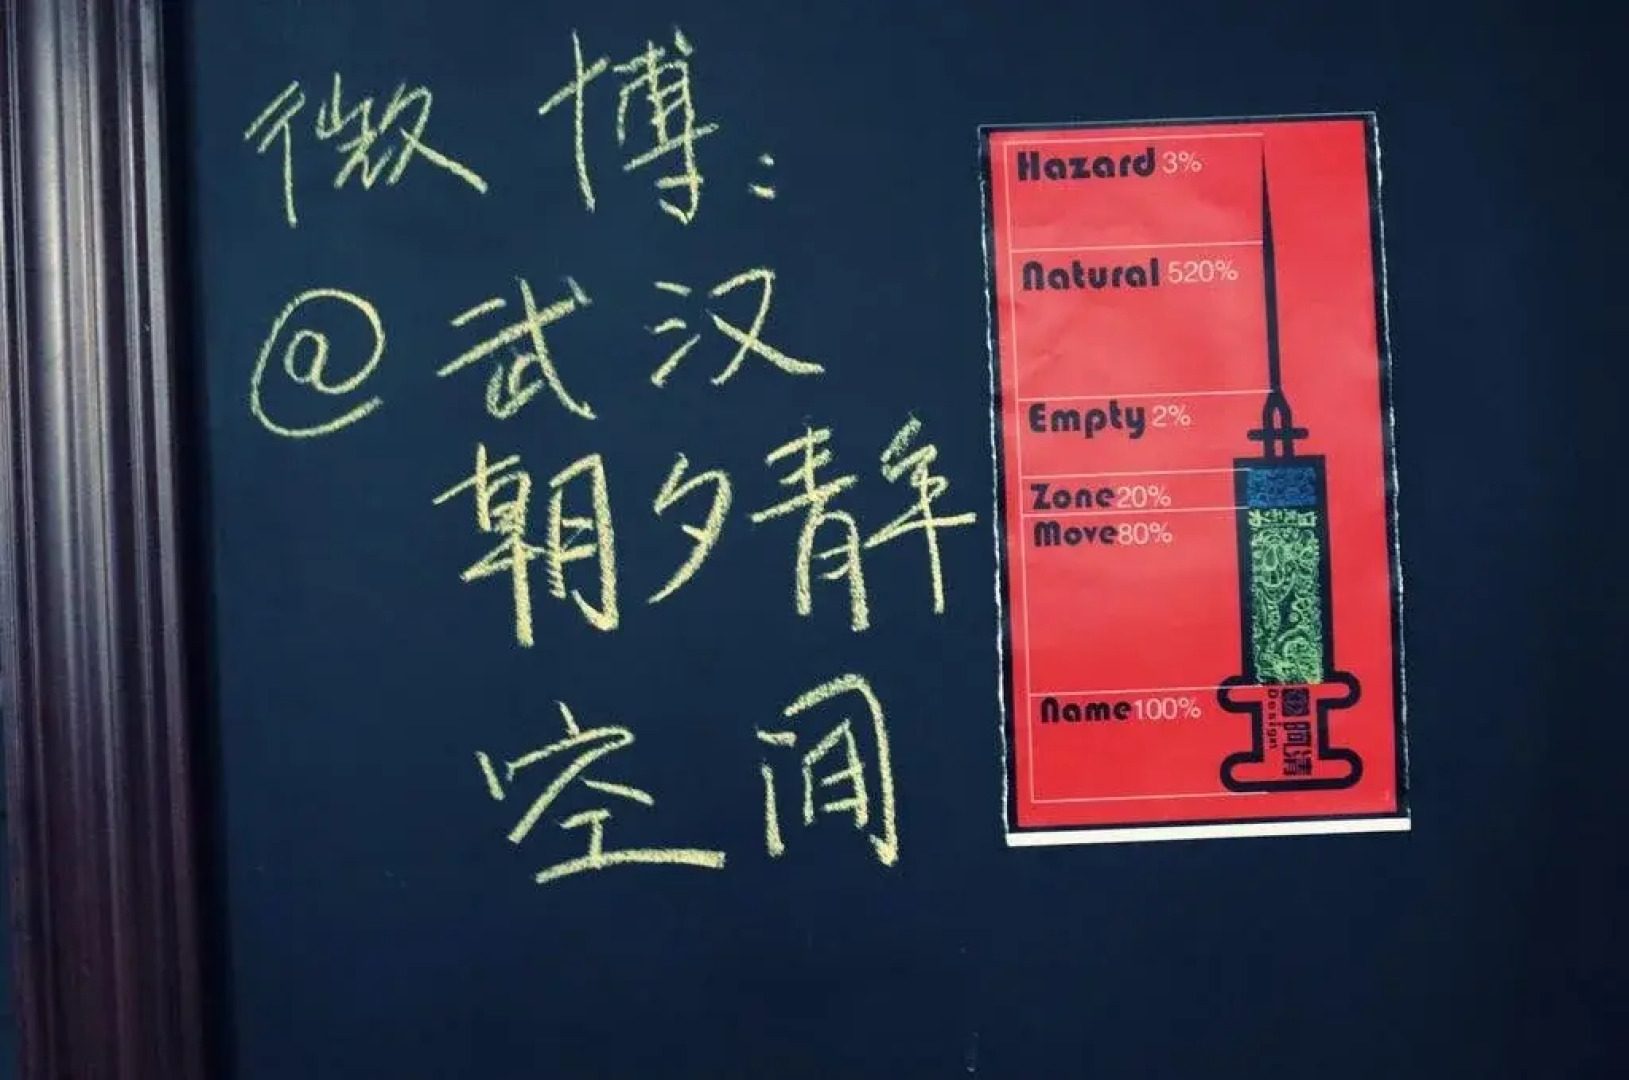 微博:
@武汉
朝夕青年
空间
Hazard 3%
Natural 520%
Empty 2%
Zone 20%
Move 80%
Name 100%
Design